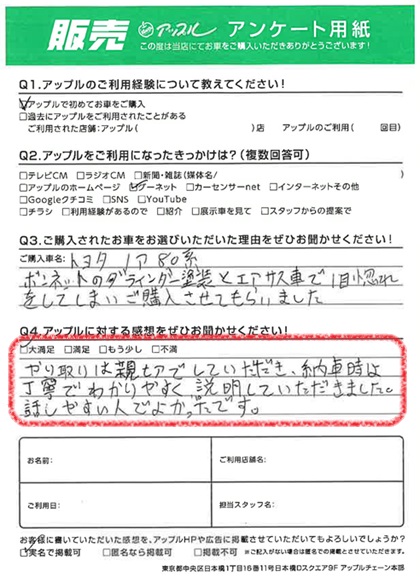 販売 アップル アンケート用紙
この度は当店にてお車をご購入いただきありがとうございます!
Q1.アップルのご利用経験について教えてください!
☑アップルで初めてお車をご購入
□過去にアップルをご利用されたことがある
ご利用された店舗:アップル( )店 アップルのご利用( 回目)
Q2.アップルをご利用になったきっかけは?(複数回答可)
□テレビCM □ラジオCM □新聞・雑誌(媒体名/ )
□アップルのホームページ ☑グーネット □カーセンサーnet □インターネットその他
□Googleクチコミ □SNS □YouTube
□チラシ □利用経験があるので □紹介 □展示車を見て □スタッフからの提案で
Q3.ご購入されたお車をお選びいただいた理由をぜひお聞かせください!
ご購入車名:トヨタ ノア 80系
ボンネットのグラインダー塗装とエアサス車で1目惚れ
をしてしまいご購入させてもらいました
Q4.アップルに対する感想をぜひお聞かせください!
☑大満足 □満足 □もう少し □不満
やり取りは親セアでしていただき、納車時は
丁寧でわかりやすく説明していただきました。
話しやすい人でよかったです。
お名前: ご利用店舗名:
ご利用日: 担当スタッフ名:
お客様に書いていただいた感想を、アップルHPや広告に掲載させていただいてもよろしいでしょうか?
☑実名で掲載可 □匿名なら掲載可 □掲載不可 ※ご記入がない場合は匿名での掲載とさせていただきます。
東京都中央区日本橋1丁目16番11号日本橋Dスクエア9F アップルチェーン本部